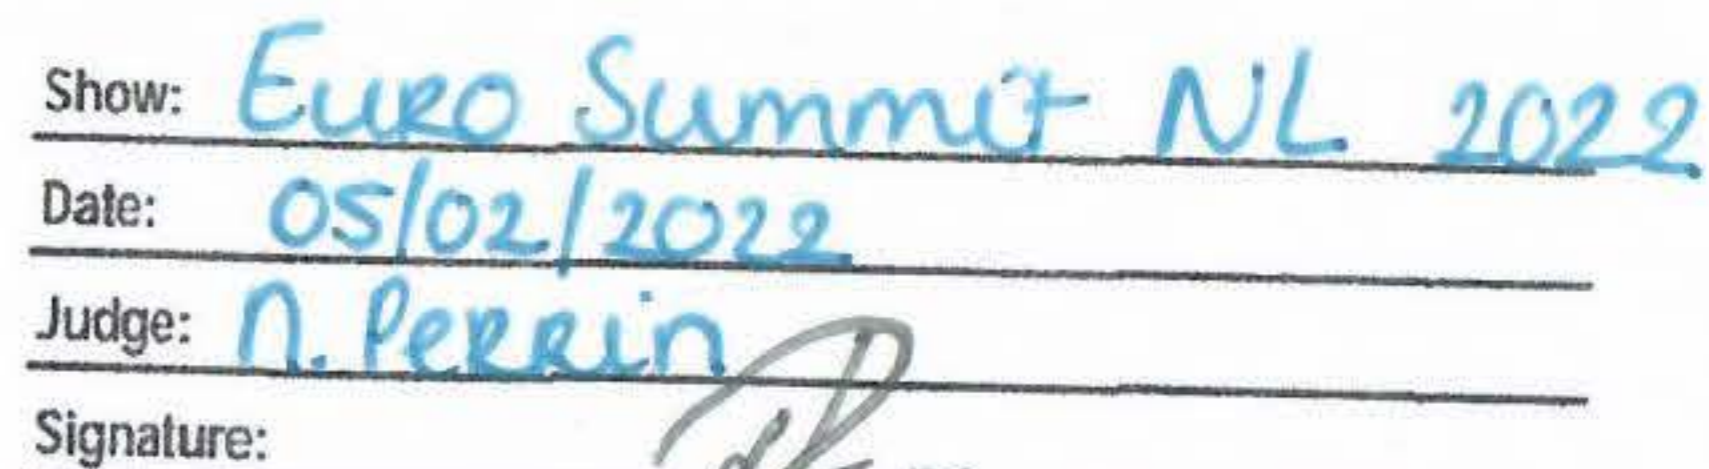 Show: Euro Summit NL 2022
Date: 05/02/2022
Judge: N. Perrin
Signature: